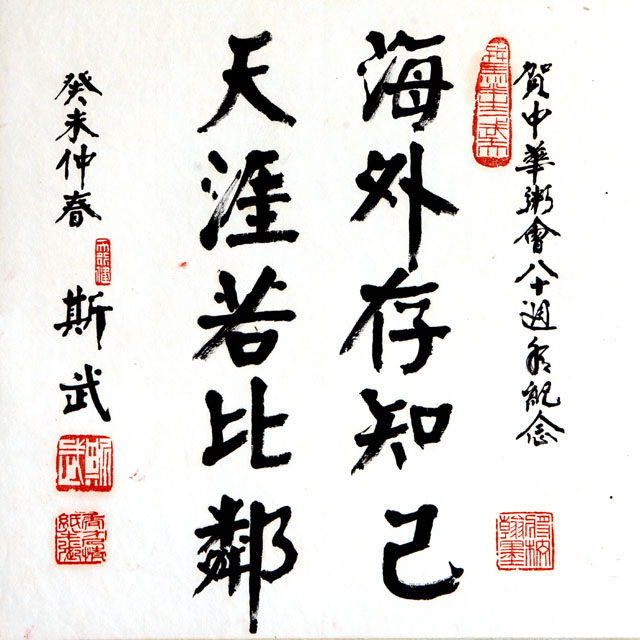 賀中華粥會八十週年紀念
海外存知己
天涯若比鄰
癸未仲春
斯武
斯武